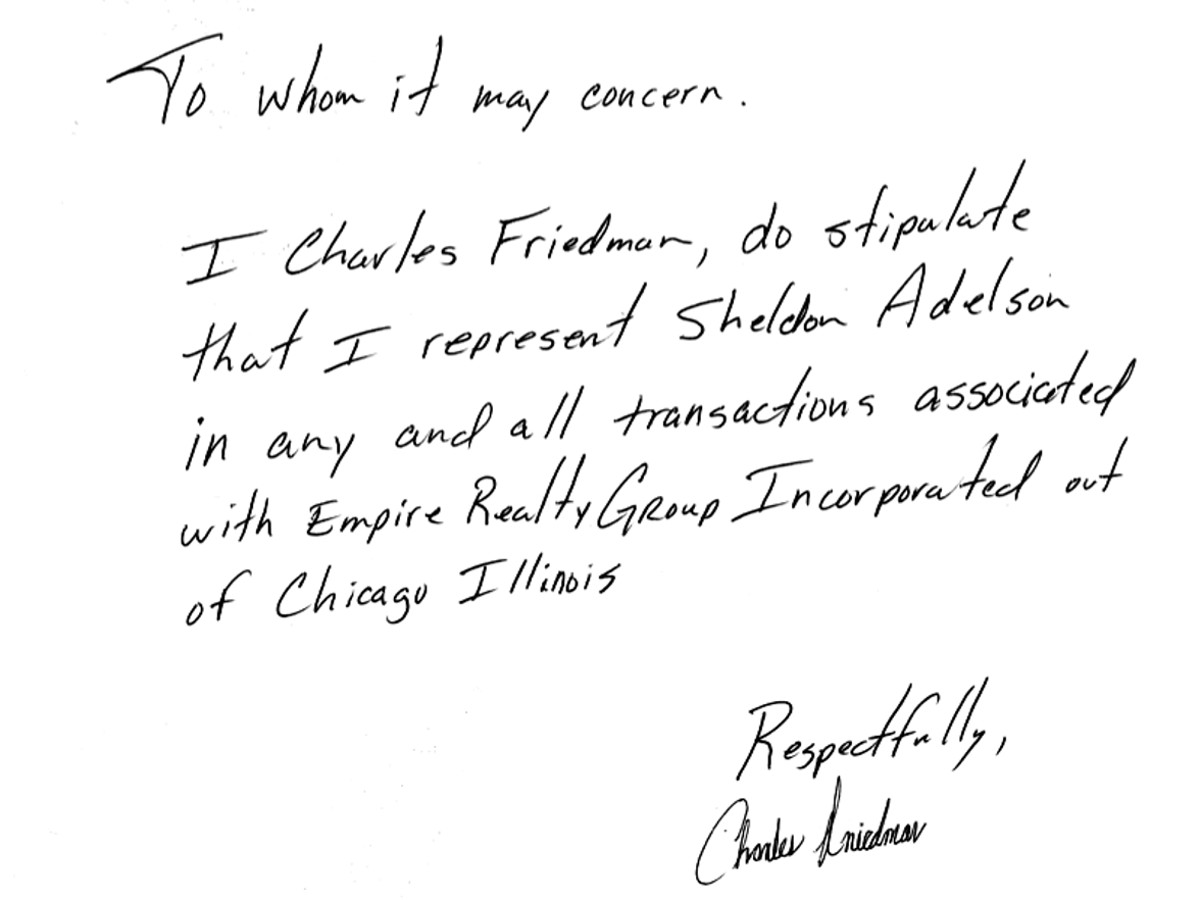 To whom it may concern.
I Charles Friedman, do stipulate
that I represent Sheldon Adelson
in any and all transactions associated
with Empire Realty Group Incorporated out
of Chicago Illinois
Respectfully,
Charles Friedman